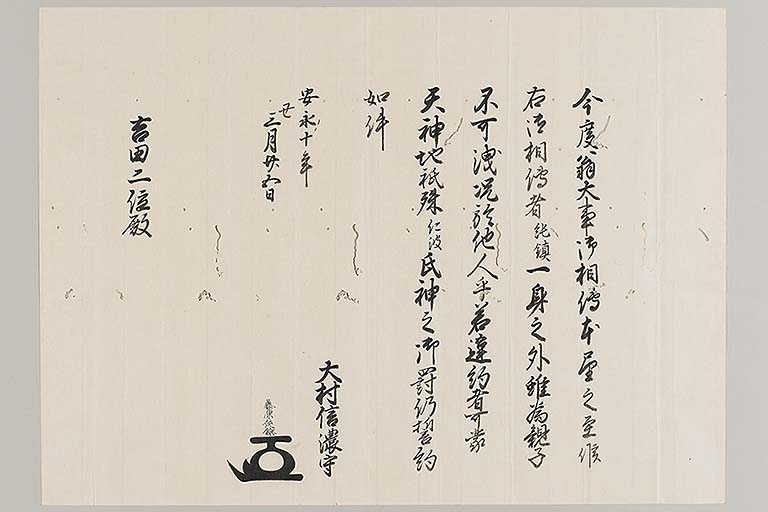 今度翁大事御相傳本望之至候
右御相傳者純鎮一身之外雖為親子
不可洩況於他人乎若違約者可蒙
天神地祇殊仁波氏神之御罰仍誓約
如件
安永十年
丑
三月廿五日
大村信濃守
藤原純鎮
吉田二位殿